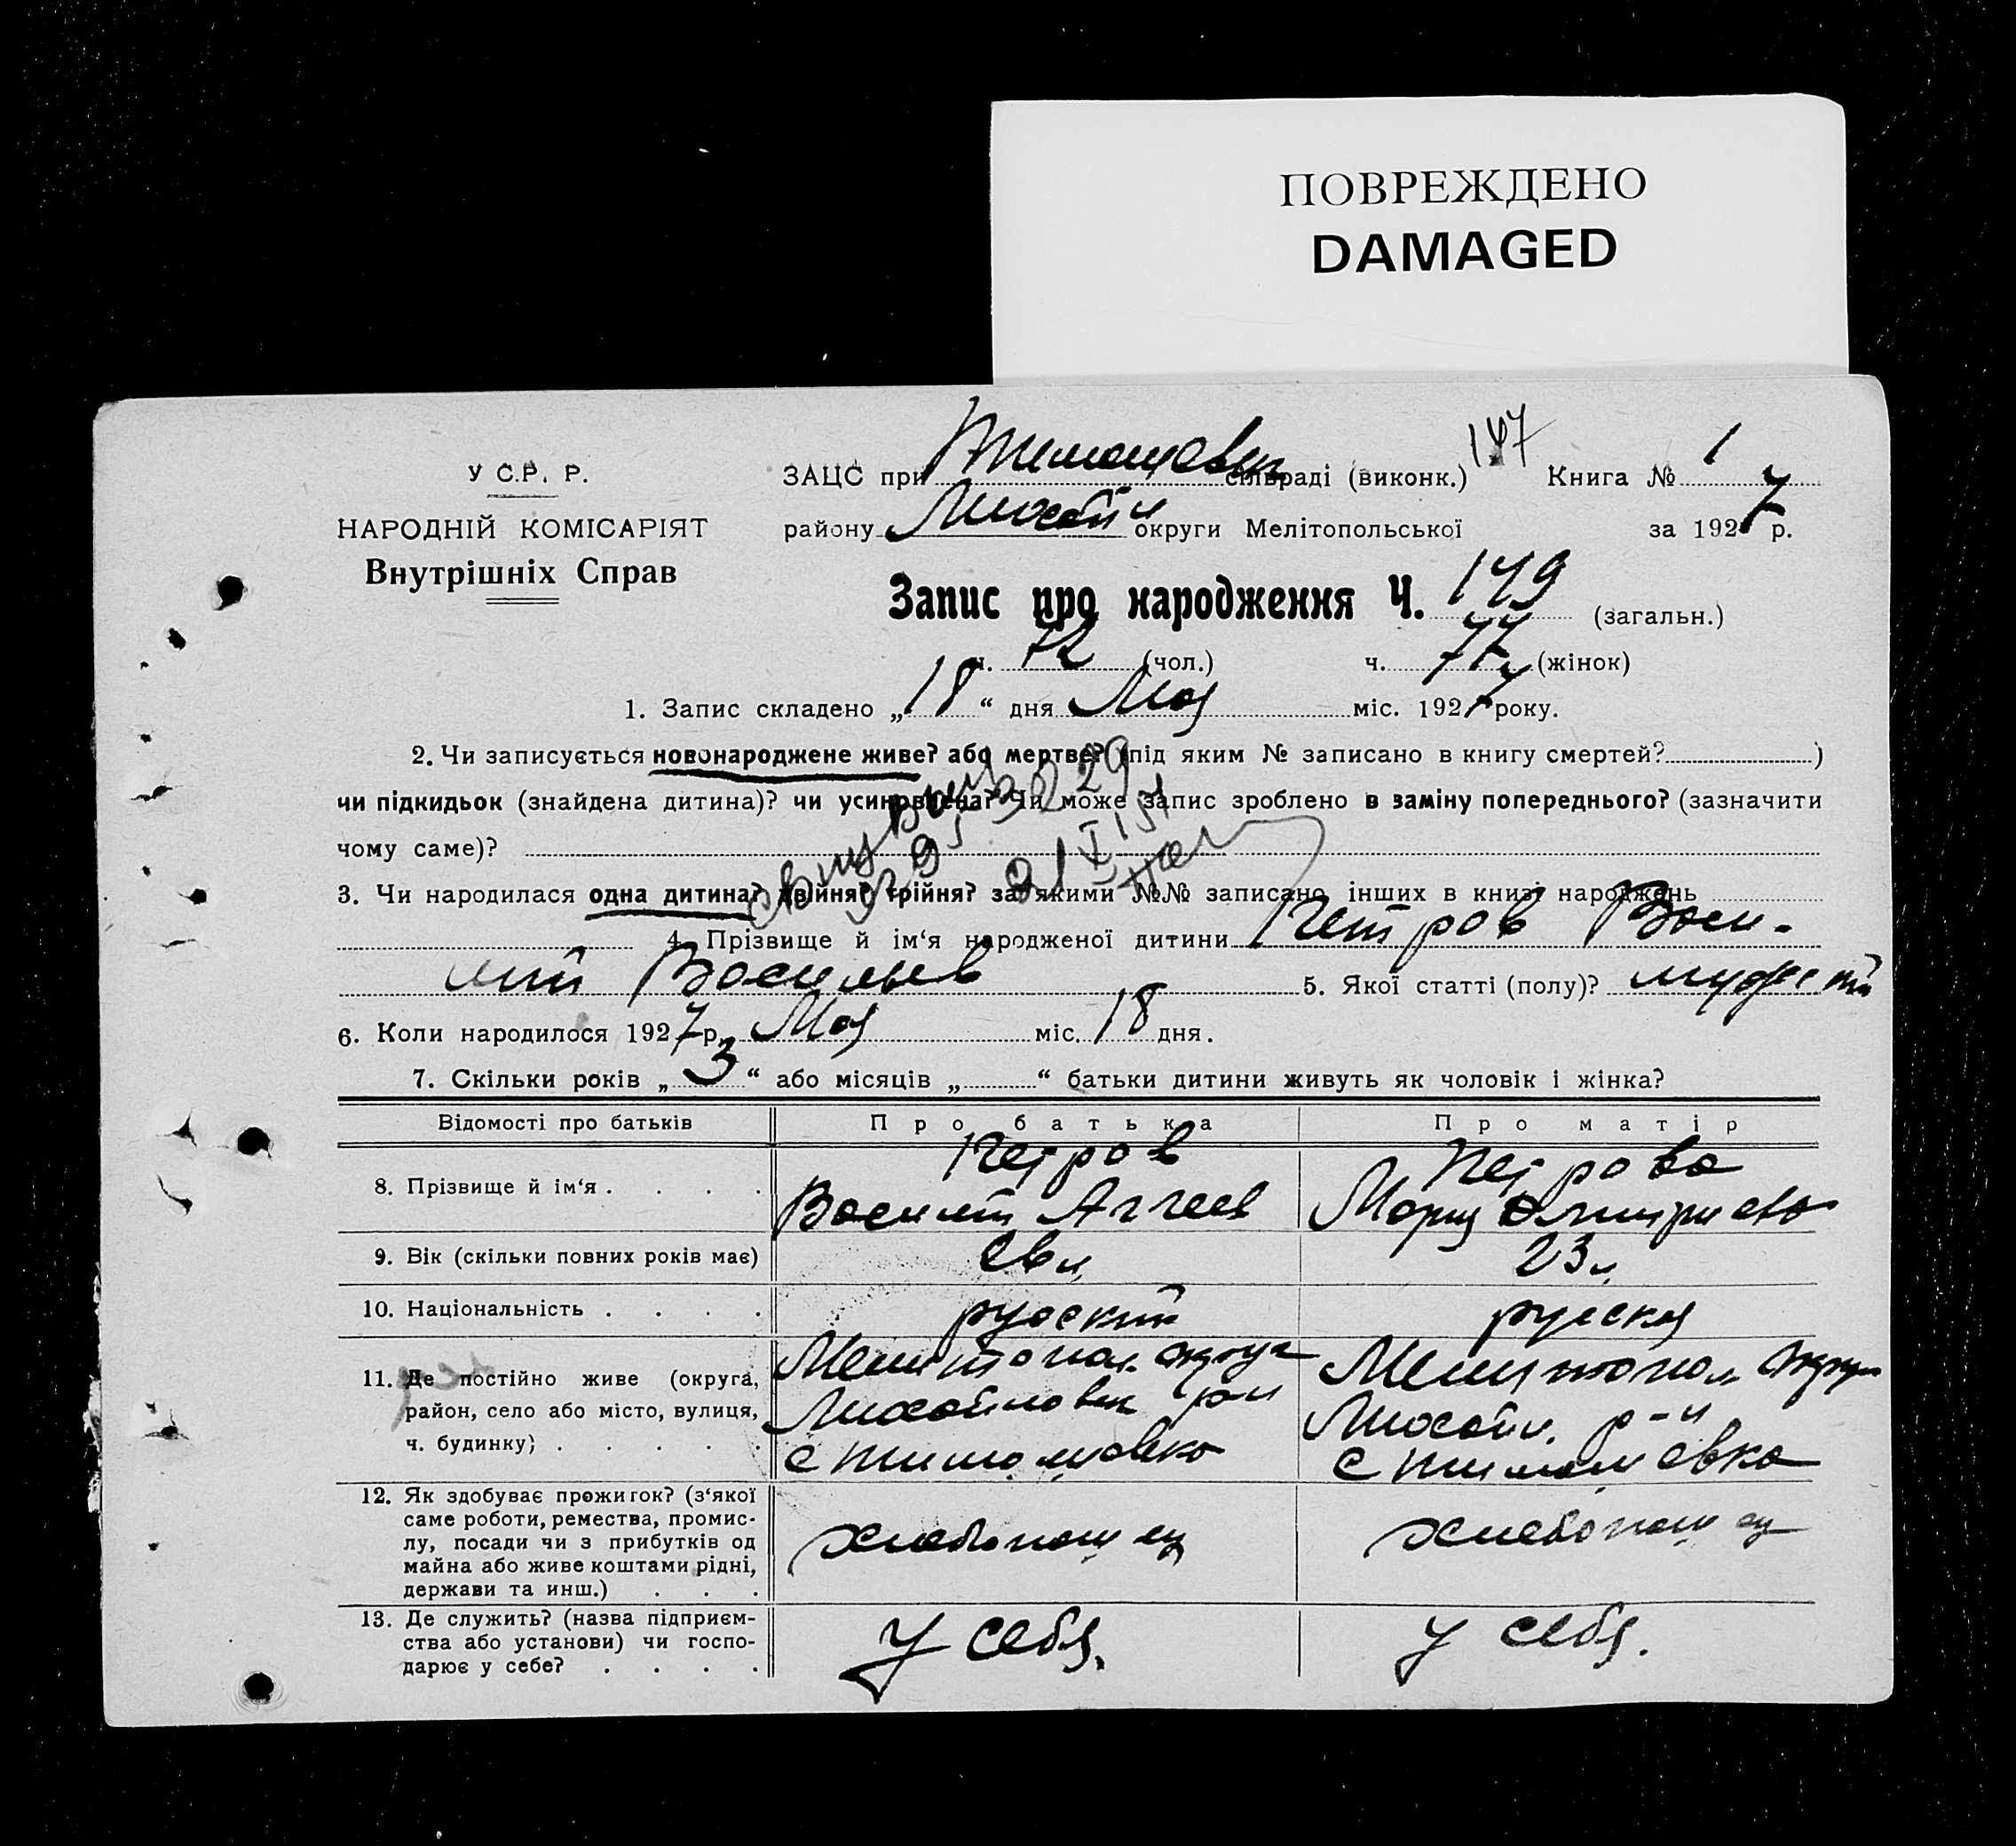 ПОВРЕЖДЕНО
DAMAGED
У С.Р. Р.
НАРОДНІЙ КОМІСАРІЯТ
Внутрішніх Справ
ЗАЦС при Тимошевк сільраді (виконк.) 147 Книга № 1
району Михайл округи Мелітопольської за 1927 р.
Запис про народження Ч. 149 (загальн.)
ч. 72 (чол.) ч. 77 (жінок)
1. Запис складено „18“ дня Мая міс. 1927 року.
2. Чи записується новонароджене живе? або мертве? (під яким № записано в книгу смертей? )
чи підкидьок (знайдена дитина)? чи усиновлена? Чи може запис зроблено в заміну попереднього? (зазначити
чому саме)?
3. Чи народилася одна дитина? двійня? трійня? за якими №№ записано інших в книзі народжень
4. Прізвище й ім‘я народженої дитини Петров Васи-
лий Васильев 5. Якої статті (полу)?
6. Коли народилося 1927 р. Мая міс. 18 дня.
7. Скільки років „3“ або місяців „ “ батьки дитини живуть як чоловік і жінка?
Відомості про батьків Про батька Про матір
8. Прізвище й ім‘я . . . . Петров Василий Аггеев Петрова Мария Дмитриева
9. Вік (скільки повних років має) 23 л
10. Національність . . . . русский руская
11. Де постійно живе (округа, Мелитопол. округ Мелитопол округ
район, село або місто, вулиця, Михайловск р-н Михайл. р-н
ч. будинку) . . . . . с Тимошовка с Тимошевка
12. Як здобуває прожиток? (з‘якої
саме роботи, ремества, промис-
лу, посади чи з прибутків од хлебопашец хлебопашец
майна або живе коштами рідні,
держави та инш.) . . .
13. Де служить? (назва підприєм-
ства або установи) чи госпо- У себя. У себя.
дарює у себе? . . . .